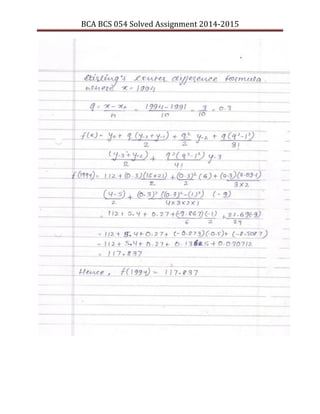 BCA BCS 054 Solved Assignment 2014-2015
Stirling's center difference formula.
where x = 1994
q = x - x₀ / h = 1994 - 1991 / 10 = 3 / 10 = 0.3
f(x) = y₀ + q (y₋₁ + y₋₁) / 2 + q² / 2 y₋₂ + q (q² - 1²) / 3!
(y₋₃ + y₋₂) / 2 + q² (q² - 1²) / 4! y₋₃
f(1994) = 112 + (0.3) (15+21) / 2 + (0.3)² / 2 (6) + (0.3) (0.09-1) / 3×2
(4-5) / 2 + (0.3)² ((0.3)² - (1)²) / 4×3×2×1 (-9)
= 112 + 5.4 + 0.27 +
= 112 + 5.4 + 0.27 + (-0.273) (-0.5) +
= 112 + 5.4 + 0.27 + 0.1365 + 0.070712
= 117.837
Hence, f(1994) = 117.837